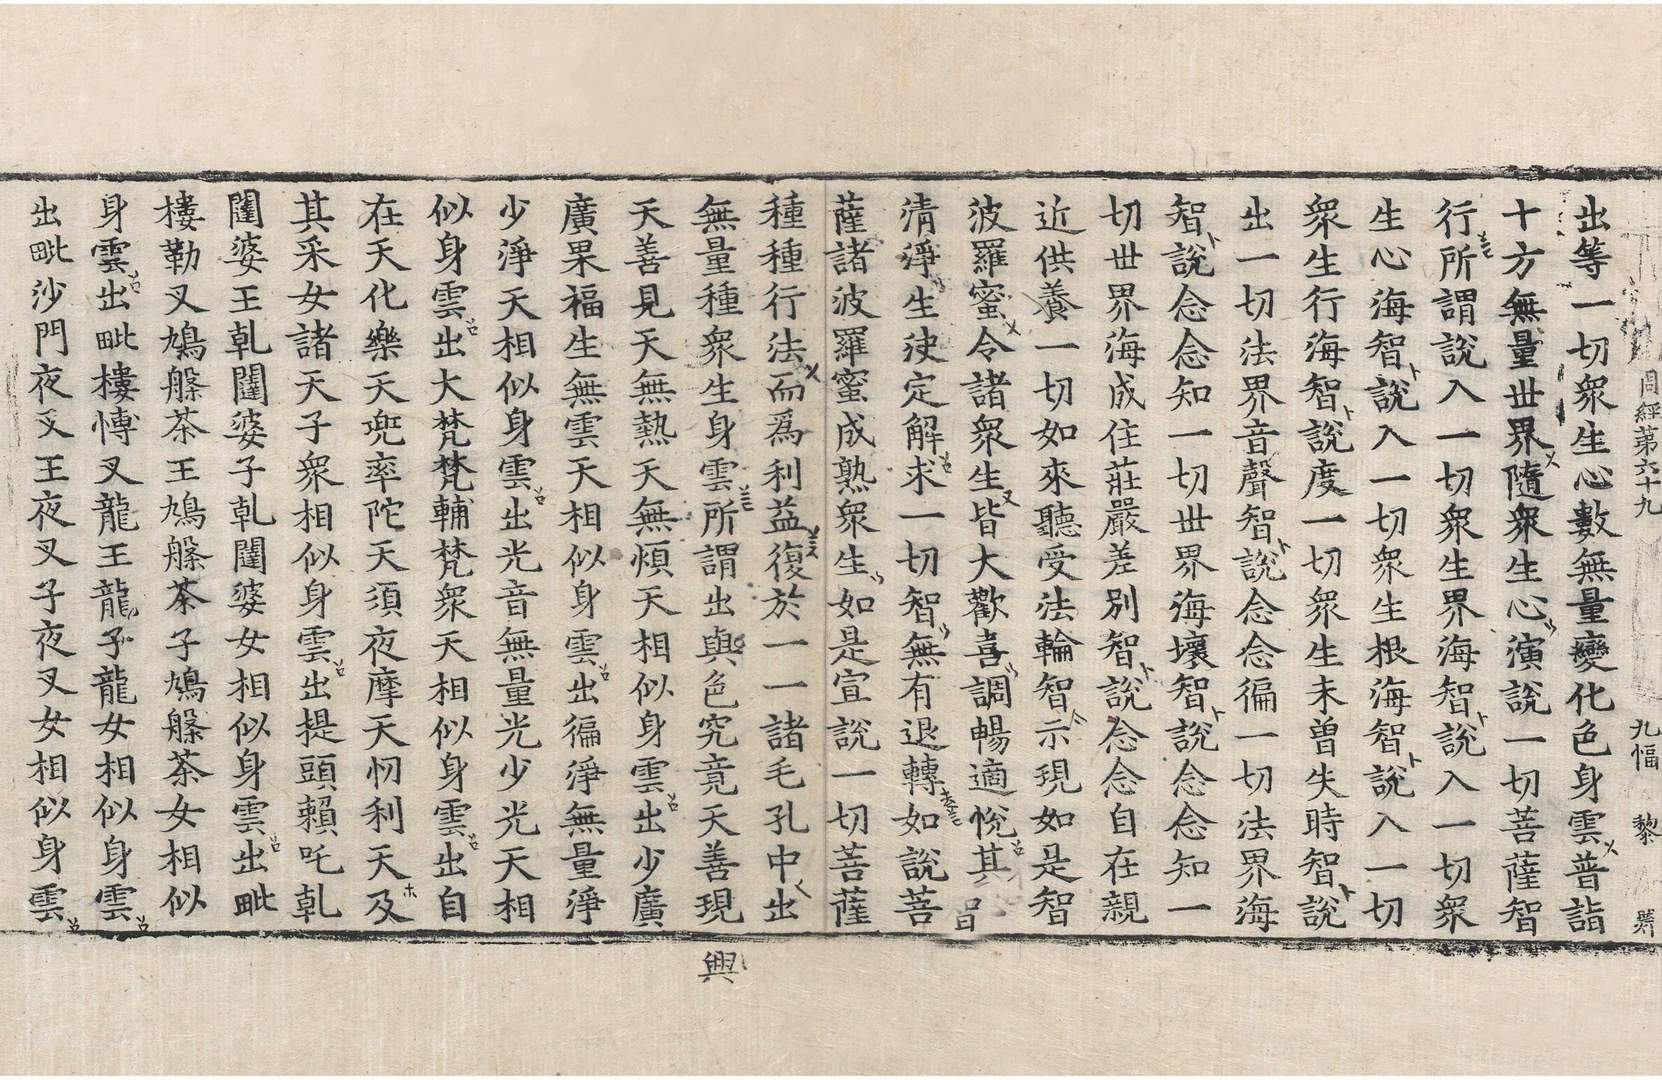 周經第六十九 九幅 黎
出等一切衆生心數無量變化色身雲普詣
十方無量世界隨衆生心演說一切菩薩智
行所謂說入一切衆生界海智說入一切衆
生心海智說入一切衆生根海智說入一切
衆生行海智說度一切衆生未曾失時智說
出一切法界音聲智說念念徧一切法界海
智說念念知一切世界海壞智說念念知一
切世界海成住莊嚴差別智說念念自在親
近供養一切如來聽受法輪智示現如是智
波羅蜜令諸衆生皆大歡喜調暢適悅其
清淨生決定解求一切智無有退轉如說菩
薩諸波羅蜜成熟衆生如是宣說一切菩薩
種種行法而爲利益復於一一諸毛孔中出
無量種衆生身雲所謂出與色究竟天善現
天善見天無熱天無煩天相似身雲出少廣
廣果福生無雲天相似身雲出徧淨無量淨
少淨天相似身雲出光音無量光少光天相
似身雲出大梵梵輔梵衆天相似身雲出自
在天化樂天兜率陀天須夜摩天忉利天及
其采女諸天子衆相似身雲出提頭賴吒乹
闥婆王乹闥婆子乹闥婆女相似身雲出毗
樓勒叉鳩槃茶王鳩槃茶子鳩槃茶女相似
身雲出毗樓愽叉龍王龍子龍女相似身雲
出毗沙門夜叉王夜叉子夜叉女相似身雲
興